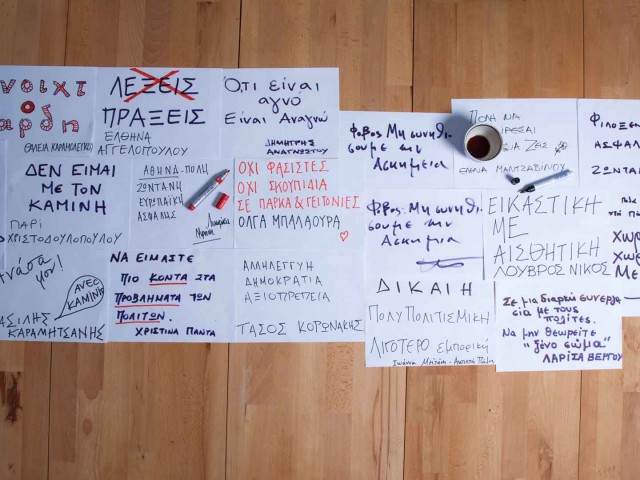 νοιχτ
αρδη
ΘΑΛΕΙΑ
ΛΕΞΕΙΣ
ΠΡΑΞΕΙΣ
ΕΛΘΗΝΑ
ΑΓΓΕΛΟΠΟΥΛΟΥ
Ό,τι είναι
αγνό
Είναι Αναγνώ
ΔΗΜΗΤΡΗΣ
ΑΝΑΓΝΩΣΤΟΥ
Φόβος Μη
σουμε την
Ασχήμεια
ΠΟΛΗ ΝΑ
ΖΗΣ
ΕΛΕΝΑ
ΦΙΛΟΞΕΝ
ΑΣΦΑΛ
ΖΩΝΤΑΝ
ΔΕΝ ΕΙΜΑΙ
ΜΕ ΤΟΝ
ΚΑΜΙΝΗ
ΠΑΡΙ
ΧΡΙΣΤΟΔΟΥΛΟΠΟΥΛΟΥ
ΑΘΗΝΑ-ΠΟΛΗ
ΖΩΝΤΑΝΗ
ΕΥΡΩΠΑΪΚΗ
ΑΣΦΑΛΗΣ
ΟΧΙ ΦΑΣΙΣΤΕΣ
ΟΧΙ ΣΚΟΥΠΙΔΙΑ
ΣΕ ΠΑΡΚΑ & ΓΕΙΤΟΝΙΕΣ
ΟΛΓΑ ΜΠΑΛΑΟΥΡΑ
Φόβος Μη
σουμε την
Ασχήμεια
ΕΙΚΑΣΤΙΚΗ
ΜΕ
ΑΙΣΘΗΤΙΚΗ
ΛΟΥΒΡΟΣ ΝΙΚΟΣ
χωρ
Χωρ
Με
ανάσα
μου!
ΑΝΕΟ
ΚΑΜΙΝΗ
ΑΣΙΛΗΣ
ΚΑΡΑΜΗΤΣΑΝΗΣ
ΝΑ ΕΙΜΑΣΤΕ
ΠΙΟ ΚΟΝΤΑ ΣΤΑ
ΠΡΟΒΛΗΜΑΤΑ ΤΩΝ
ΠΟΛΙΤΩΝ.
ΧΡΙΣΤΙΝΑ ΠΑΝΤΑ
ΑΛΛΗΛΕΓΓΥΗ
ΔΗΜΟΚΡΑΤΙΑ
ΑΞΙΟΠΡΕΠΕΙΑ
ΤΑΣΟΣ ΚΟΡΩΝΑΚΗΣ
ΔΙΚΑΙΗ
ΠΟΛΥΠΟΛΙΤΙΣΜΙΚΗ
ΛΙΓΟΤΕΡΟ εμπορική
Σε μια διαρκή συνεργα
σία με τους
πολίτες.
Να μην θεωρείτε
"ξένο σώμα"
ΛΑΡΙΣΑ ΒΕΡΓΟΥ